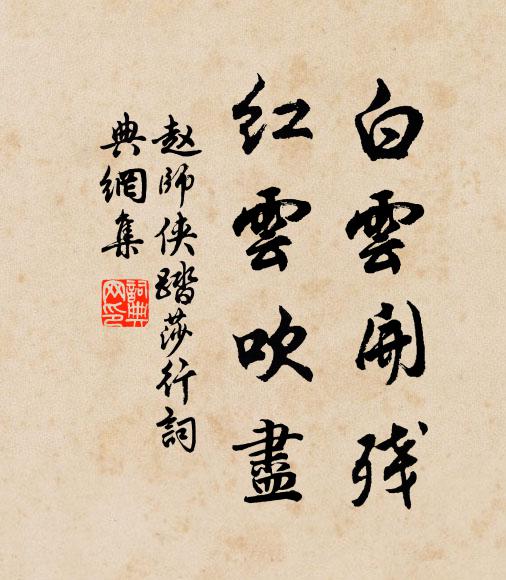 白雲開残
紅雲吹盡
赵師俠踏莎行詞
典網集
詞典网印